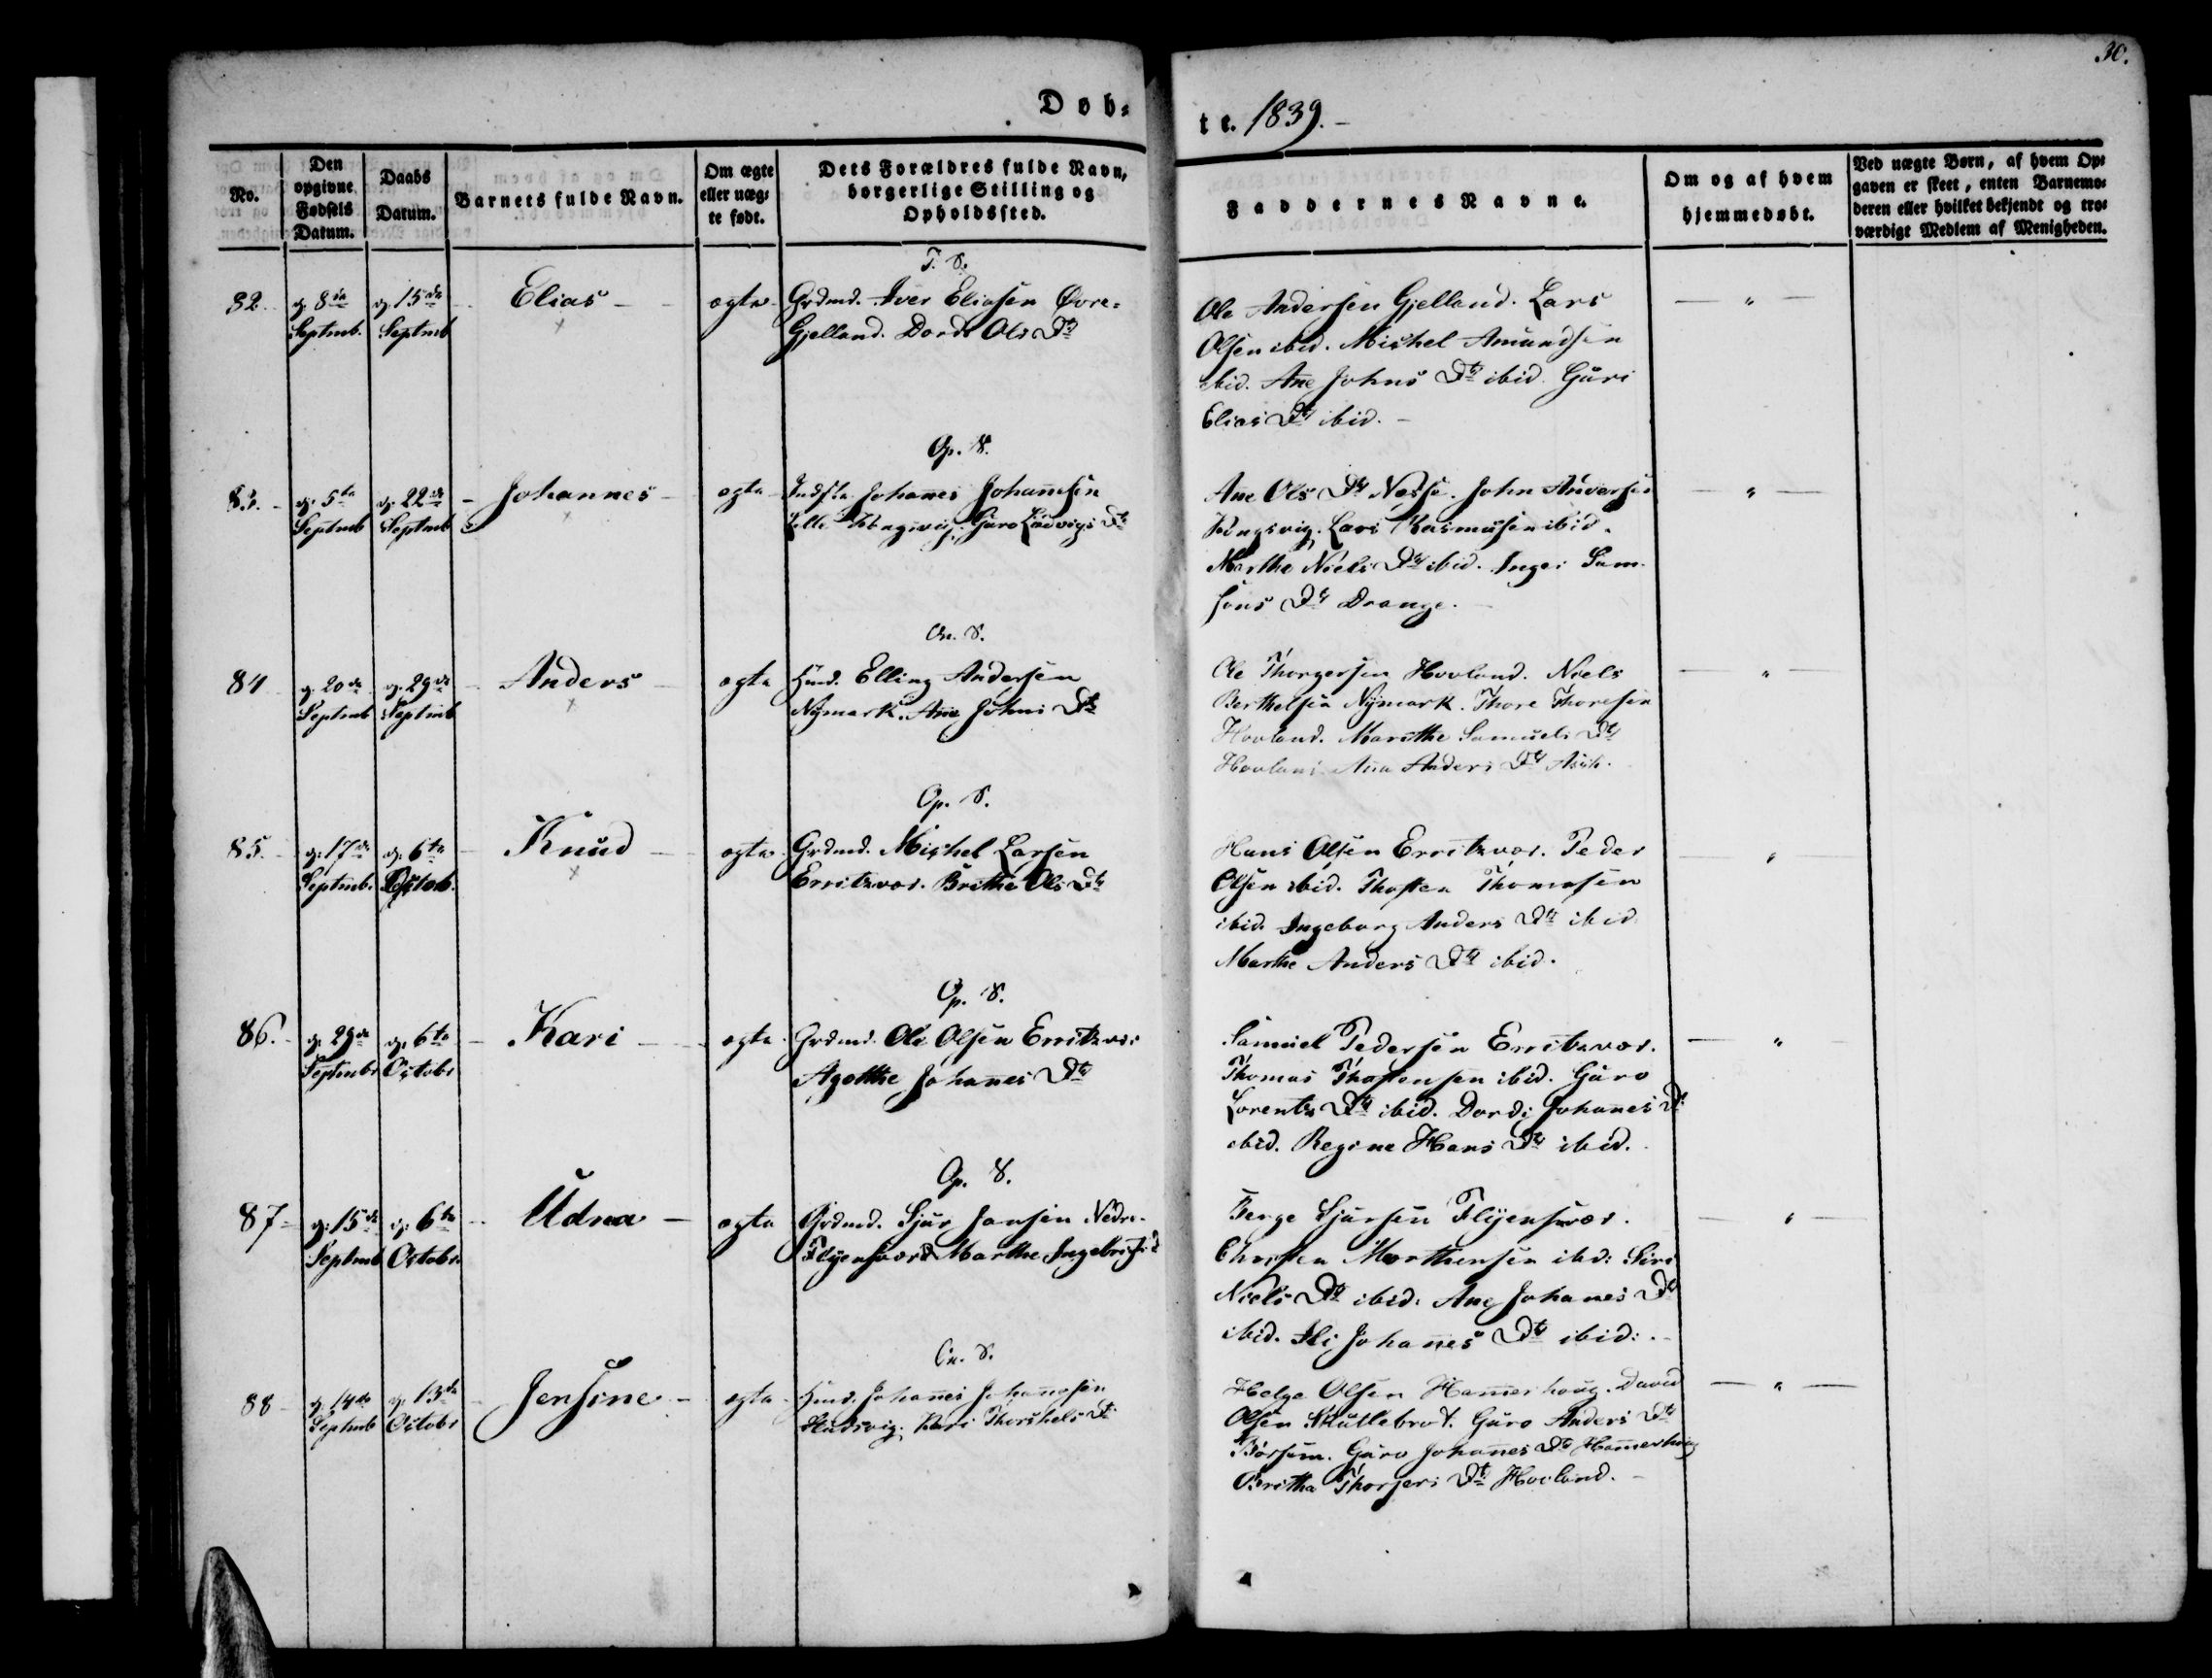 30.
Døb-
te. 1839.-
No.
Den opgivne Fødsels Datum.
Daabs Datum.
Barnets fulde Navn.
Om ægte eller uæg-te født.
Dets Forældres fulde Navn, borgerlige Stilling og Opholdssted.
Faddernes Navne.
Om og af hvem hjemmedøbt.
Ved uægte Børn, af hvem Op-gaven er skeet, enten Barnemo-deren eller hvilket bekjendt og tro-værdigt Medlem af Menigheden.
82. d. 8de Septmb. d. 15de Septmb Elias - ægte
Grdmd. Iver Eliasen Øvre-
Gjelland. Dordi Ols Dtr
Ole Andersen Gjelland. Lars
Olsen ibid. Mickel Amundsen
ibid. Ane Johns Dtr ibid. Guri
Elias Dtr ibid. -
Op. S.
83. d. 5te Septmb d. 22de Septmb - Johannes - ægte
Indste Johanes Johannesen
Guro Ludvigs Dtr
Ane Ols Dtr Nesse. John Andersen
Lars Rasmusen ibid.
Marthe Niels Dtr ibid. Inger Sam-
sons Dtr Drange.
84 d. 20de Septmb d. 29de Septmb - Anders - ægte
Elling Andersen
Nymark. Ane Johns Dtr
Ole Thorgersen Hovland. Niels
Berthelsen Nymark. Thore Thoresen
Hovland. Marthe Samuels Dtr
Hovland. Ana Anders Dtr
Op. S.
85. d. 17de Septmb. d. 6te Octob. - Knud - ægte
Grdmd. Mickel Larsen
Erritzvær. Brithe Ols Dtr
Hans Olsen Erritzvær. Peder
Olsen ibid. Thosten Thomasen
ibid. Ingeborg Anders Dtr ibid
Marthe Anders Dtr ibid.
Op. S.
86. d. 29de Septmbr d. 6te Octobr - Kari - ægte
Grdmd. Ole Olsen Erritzvær
Agatthe Johanes Dtr
Samuel Pedersen Erritzvær.
Thomas Thostensen ibid. Guro
Lorents Dtr ibid. Dordi Johanes Dtr
ibid. Regine Hans Dtr ibid.
Op. S.
87 - d. 15de Septmb d. 6te Octobr. - Udna - ægte
Grdmd. Sjur Jansen Nedre-
Marthe
Berge Sjursen
Christen Morthensen ibd: Siri
Niels Dtr ibid. Ane Johanes Dtr
ibid. Johanes Dtr ibid: -
88 - d. 14de Septmb d. 13de Octobr - Jensine - ægte
Johanes Johannesen
Kari Thorkels Dtr
Helge Olsen Hamerhoug. David
Olsen Skutlebrot. Guro Anders Dtr
Guro Johanes Dtr Hamerhoug
Britha Dtr Hovland. -